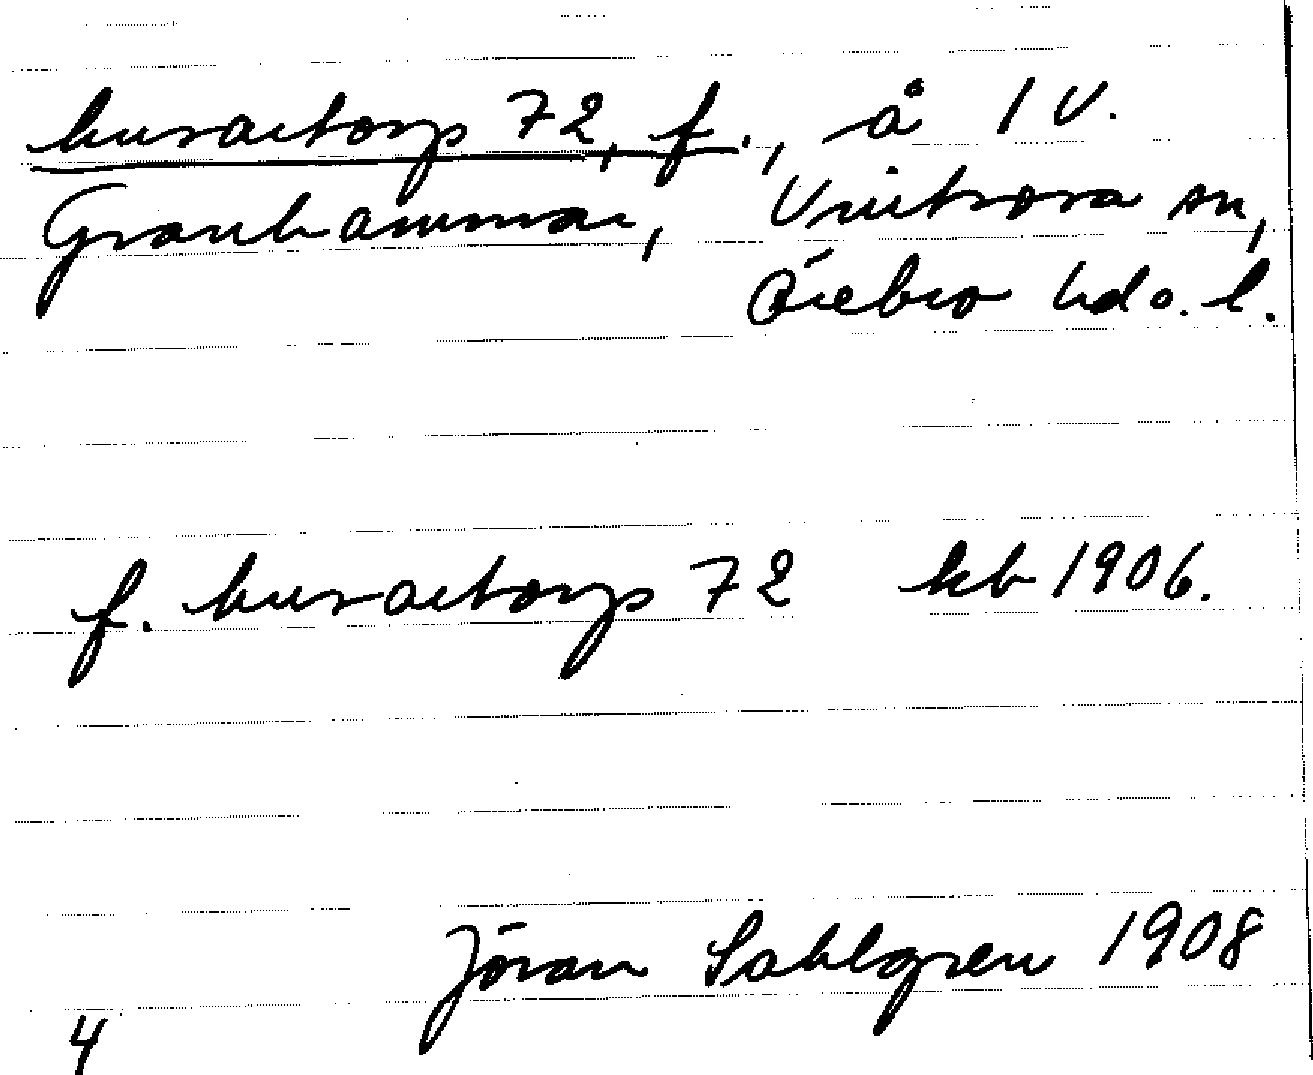 kvrnetorp 72, f., å 1 V.
Granhammar, Vintrosa sn,
Örebro hd o. l.
f. kvrnetorp 72 kb 1906.
Jöran Sahlgren 1908
4